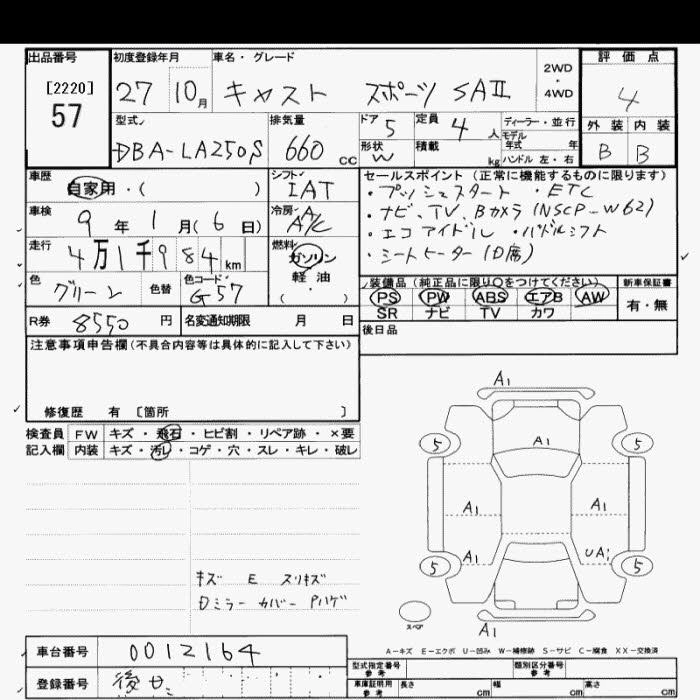 出品番号
[2220]
57
初度登録年月
27 10月
車名・グレード
キャスト スポーツ SAⅡ
2WD
・
4WD
評価点
4
外装 内装
B B
型式
DBA-LA250S
排気量
660 cc
ドア 5
定員 4 人
形状 W
積載 kg
ディーラー・並行
モデル
年式 年
ハンドル 左・右
車歴
自家用・( )
シフト
IAT
車検
9 年 1 月 ( 6 日)
冷房
A/C
走行
4万1千984 km
燃料
ガソリン
・
軽油
( )
色
グリーン
色替
色コード
G57
R券 8550 円
名変通知期限 月 日
セールスポイント (正常に機能するものに限ります)
・プッシュスタート ・ETC
・ナビ、TV、Bカメラ (NSCP-W62)
・エコアイドル ・パドルシフト
・シートヒーター (D席)
装備品 (純正品に限り○をつけてください)
新車保証書
PS PW ABS エアB AW
SR ナビ TV カワ
有・無
後日品
注意事項申告欄(不具合内容等は具体的に記入して下さい)
修復歴 有 〔箇所 〕
検査員 FW キズ・飛石・ヒビ割・リペア跡・×要
記入欄 内装 キズ・汚レ・コゲ・穴・スレ・キレ・破レ
キズ E スリキズ
Dミラーカバー Pハゲ
A1
5 5
A1
A1 A1
A1 UA1
5 5
スペア
A1
A-キズ E-エクボ U-凹み W-補修跡 S-サビ C-腐食 XX-交換済
車台番号 0012164
登録番号 後日
型式指定番号
参考
類別区分番号
参考
車庫証明用
参考
長さ cm 幅 cm 高さ cm